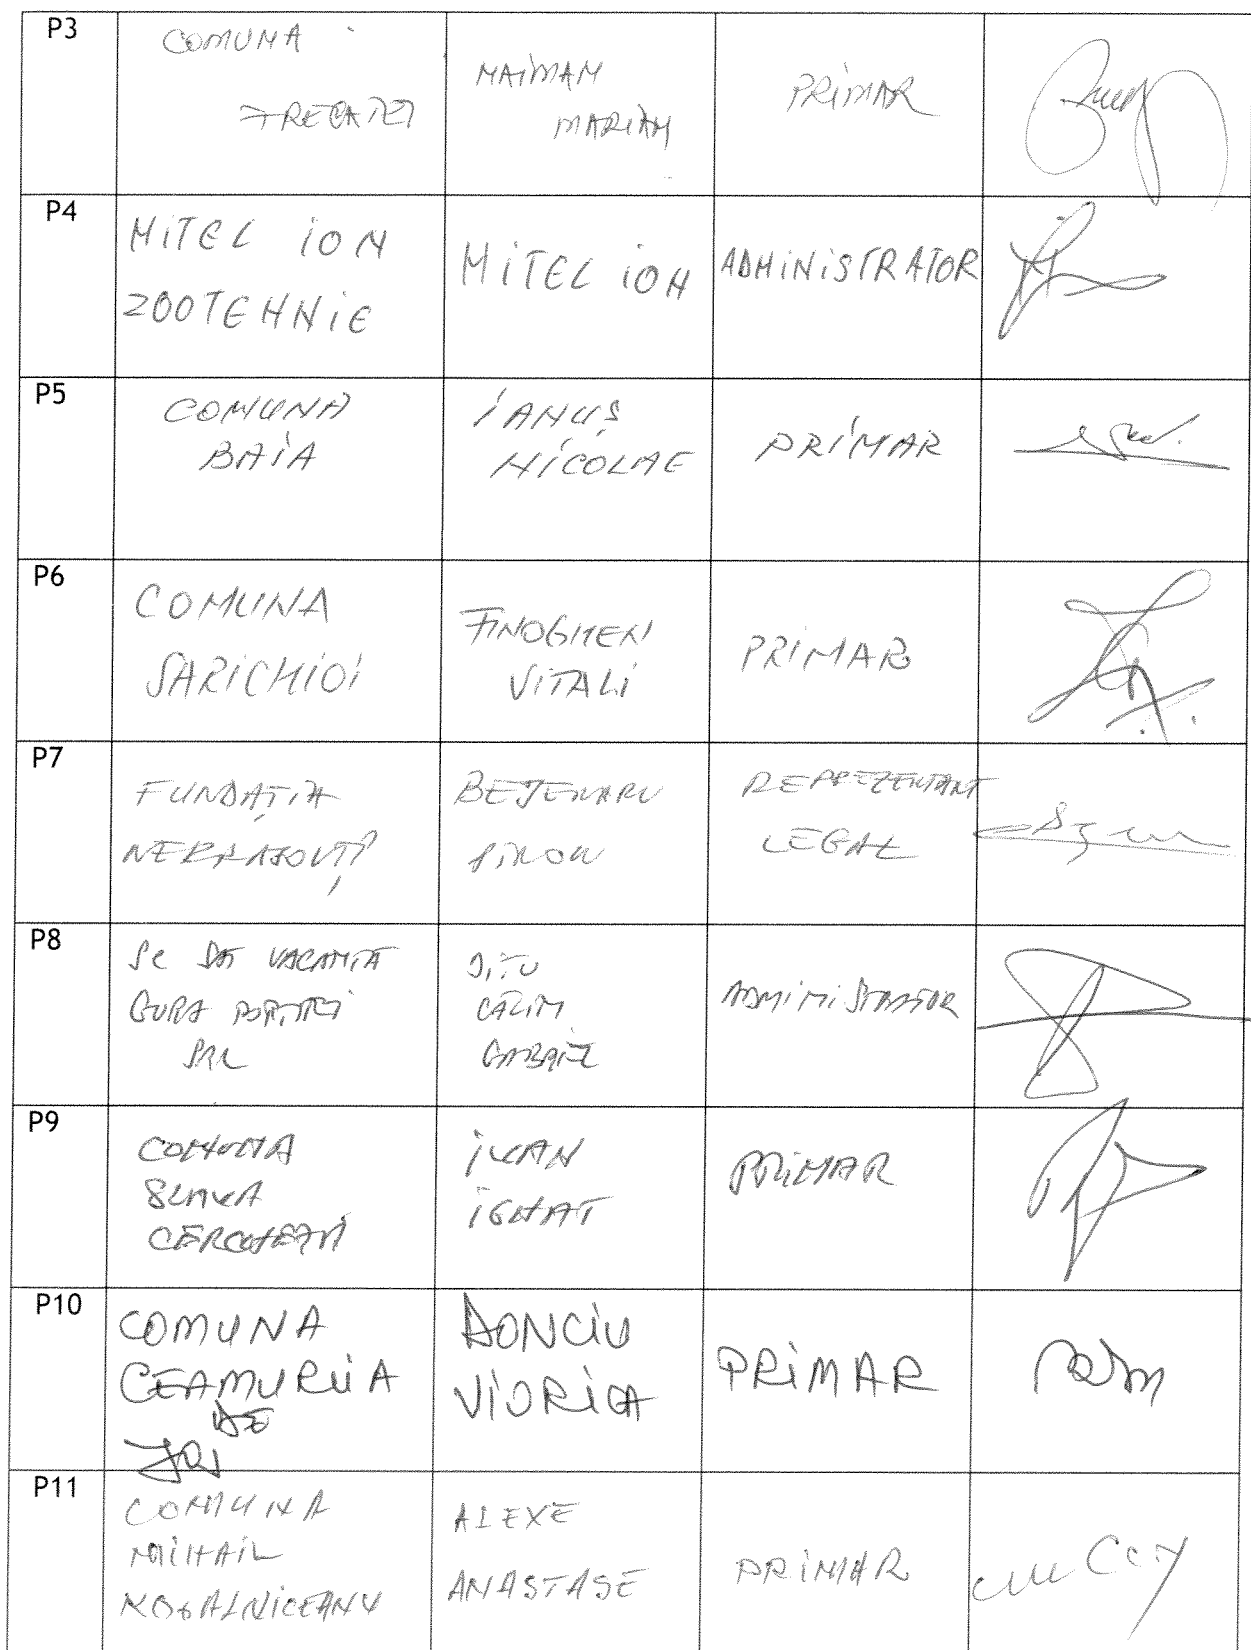 P3
COMUNA
MAIMAM
MARIAM
PRIMAR
P4
MITEL ION
ZOOTEHNIE
MITEL ION
ADMINISTRATOR
P5
COMUNA
BAIA
IANUȘ
NICOLAE
PRIMAR
P6
COMUNA
SARICHIOI
FINOGHEN
VITALI
PRIMAR
P7
FUNDAȚIA
BEJENARU
REPREZENTANT
LEGAL
P8
SC SAT VACANTA
GURA PORTITEI
SRL
CALIN
ADMINISTRATOR
P9
COMUNA
SLAVA
CERCHEZA
IVAN
IGNAT
PRIMAR
P10
COMUNA
CEAMURLIA
DE
JOS
DONCIU
VIORICA
PRIMAR
P11
COMUNA
MIHAIL
KOGALNICEANU
ALEXE
ANASTASE
PRIMAR